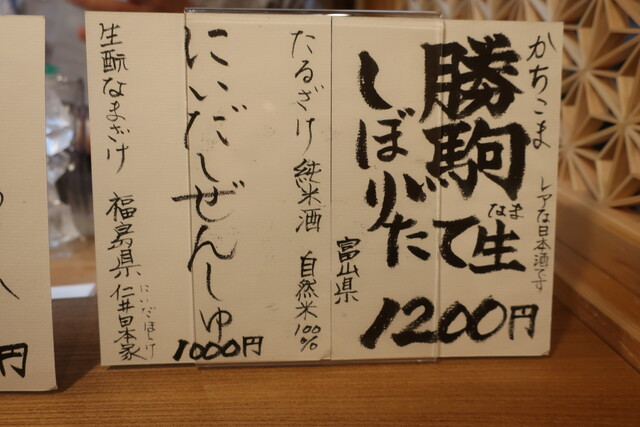 かちこま
レアな日本酒です
勝駒
しぼりたて
生
なま
富山県
1200円
たるざけ 純米酒 自然米100%
にいだしぜんしゅ
1000円
生酛なまざけ 福島県 仁井田本家
にいだほんけ
円